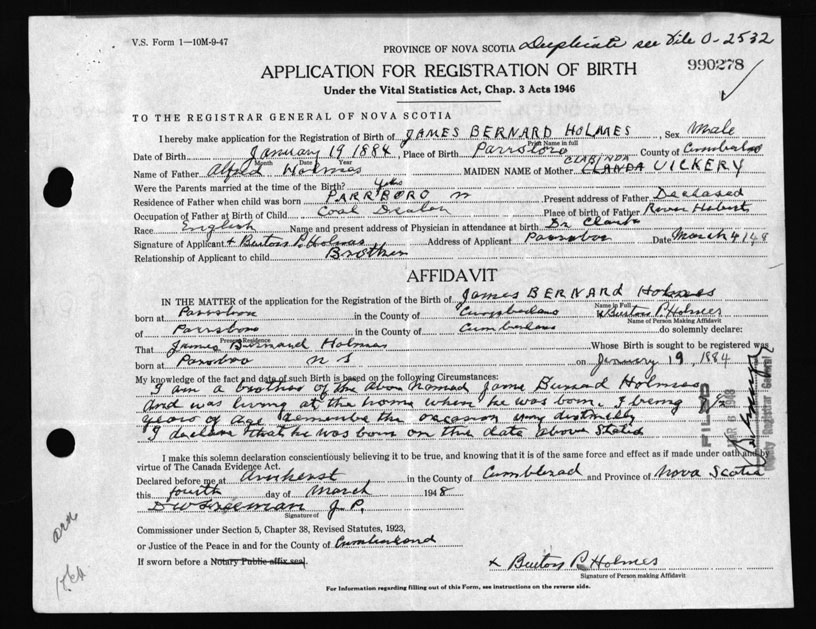 V.S. Form 1—10M-9-47
PROVINCE OF NOVA SCOTIA Duplicate see File O-2532
APPLICATION FOR REGISTRATION OF BIRTH 990278
Under the Vital Statistics Act, Chap. 3 Acts 1946
TO THE REGISTRAR GENERAL OF NOVA SCOTIA
I hereby make application for the Registration of Birth of JAMES BERNARD HOLMES, Sex Male
Print Name in full
Date of Birth January 19 1884, Place of Birth Parrsboro County of
Month Date Year
CLARINDA
Name of Father Alfred Holmes MAIDEN NAME of Mother VICKERY
Were the Parents married at the time of the Birth? Yes
Residence of Father when child was born PARRSBORO Present address of Father Deceased
Occupation of Father at Birth of Child Coal Dealer Place of birth of Father River Hebert
Race English Name and present address of Physician in attendance at birth Dr
Signature of Applicant x Burton P. Holmes Address of Applicant Parrsboro Date March 4/48
Relationship of Applicant to child Brother
AFFIDAVIT
IN THE MATTER of the application for the Registration of the Birth of James BERNARD Holmes
Name in Full
born at Parrsboro in the County of Cumberland Burton P. Holmes
Name of Person Making Affidavit
of Parrsboro in the County of Cumberland do solemnly declare:
Present Residence
That James Bernard Holmes Whose Birth is sought to be registered was
born at Parrsboro N S on January 19, 1884
My knowledge of the fact and date of such Birth is based on the following Circumstances:
I am a brother of the above named James Bernard Holmes
and was living at the home when he was born. I being
years of age remember the occasion very distinctly
I declare that he was born on the date above stated
FILED
MAR 6 1948
Deputy Registrar General
I make this solemn declaration conscientiously believing it to be true, and knowing that it is of the same force and effect as if made under oath and by
virtue of The Canada Evidence Act.
Declared before me at Amherst in the County of Cumberland and Province of Nova Scotia
this fourth day of March 1948
J. P.
Signature of
Commissioner under Section 5, Chapter 38, Revised Statutes, 1923,
or Justice of the Peace in and for the County of Cumberland
If sworn before a Notary Public affix seal.
x Burton P. Holmes
Signature of Person making Affidavit
For Information regarding filling out of this Form, see instructions on the reverse side.